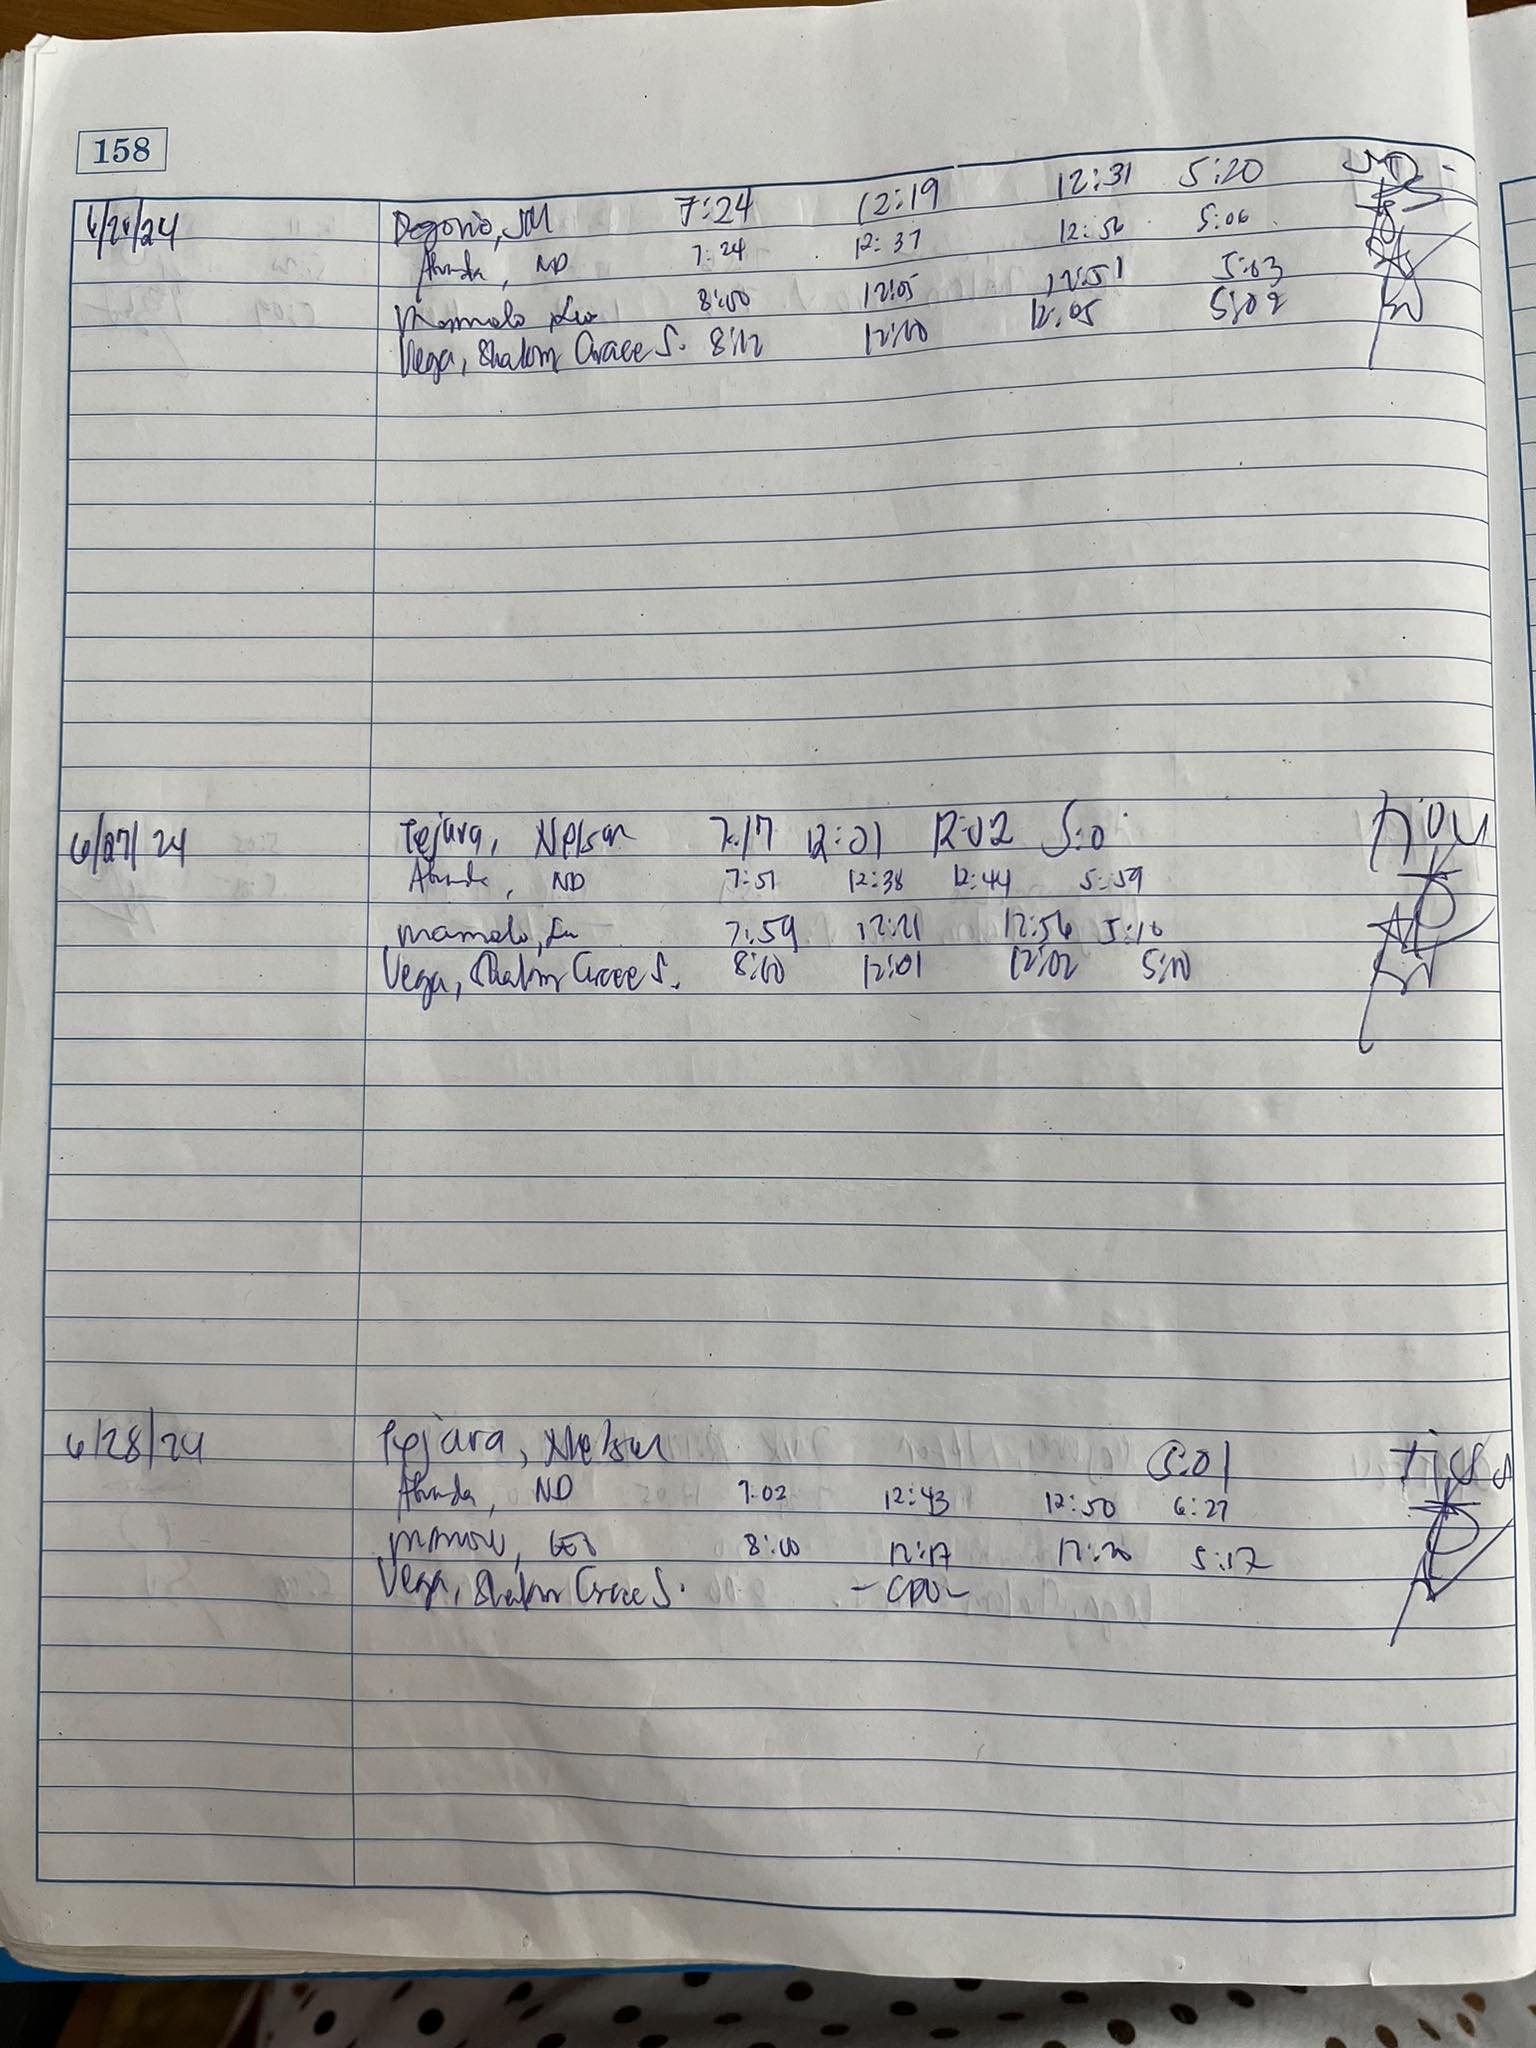 158
6/26/24 Degorio, JM 7:24 12:19 12:31 5:20
Abunda, ND 7:24 12:37 12:56 5:06
Mamolo, Leo 8:00 12:05 12:51 5:03
Vega, Shalom Grace S. 8:12 12:00 12:05 5:02
6/27/24 Tejara, Nelson 7:17 12:01 12:02 5:0
Abunda, ND 7:51 12:38 12:44 5:59
Mamolo, 7:59 12:21 12:56 5:10
Vega, Shalom Grace S. 8:00 12:01 12:02 5:00
6/28/24 Tejara, Nelson 5:01
Abunda, ND 7:02 12:43 12:50 6:27
Mamolo, Leo 8:00 12:17 12:20 5:17
Vega, Shalom Grace S. - CDO -